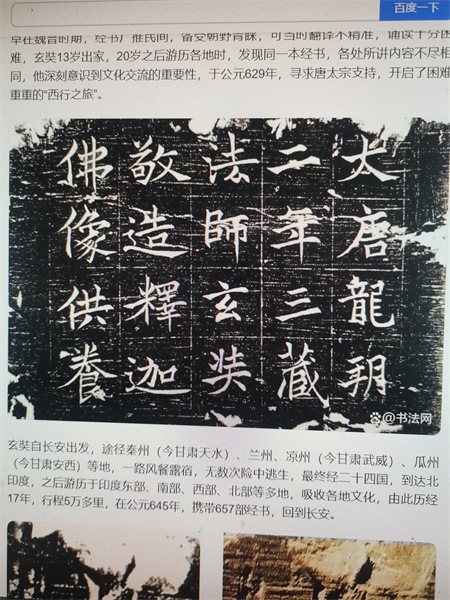 百度一下
早在魏晋时期，经书广推民间，备受朝野青睐，可当时翻译不精准，诵读十分困
难，玄奘13岁出家，20岁之后游历各地时，发现同一本经书，各处所讲内容不尽相
同，他深刻意识到文化交流的重要性，于公元629年，寻求唐太宗支持，开启了困难
重重的“西行之旅”。
大唐龍朔
二年三藏
法師玄奘
敬造釋迦
佛像供養
@书法网
玄奘自长安出发，途径秦州（今甘肃天水）、兰州、凉州（今甘肃武威）、瓜州
（今甘肃安西）等地，一路风餐露宿，无数次险中逃生，最终经二十四国，到达北
印度，之后游历于印度东部、南部、西部、北部等多地，吸收各地文化，由此历经
17年，行程5万多里，在公元645年，携带657部经书，回到长安。